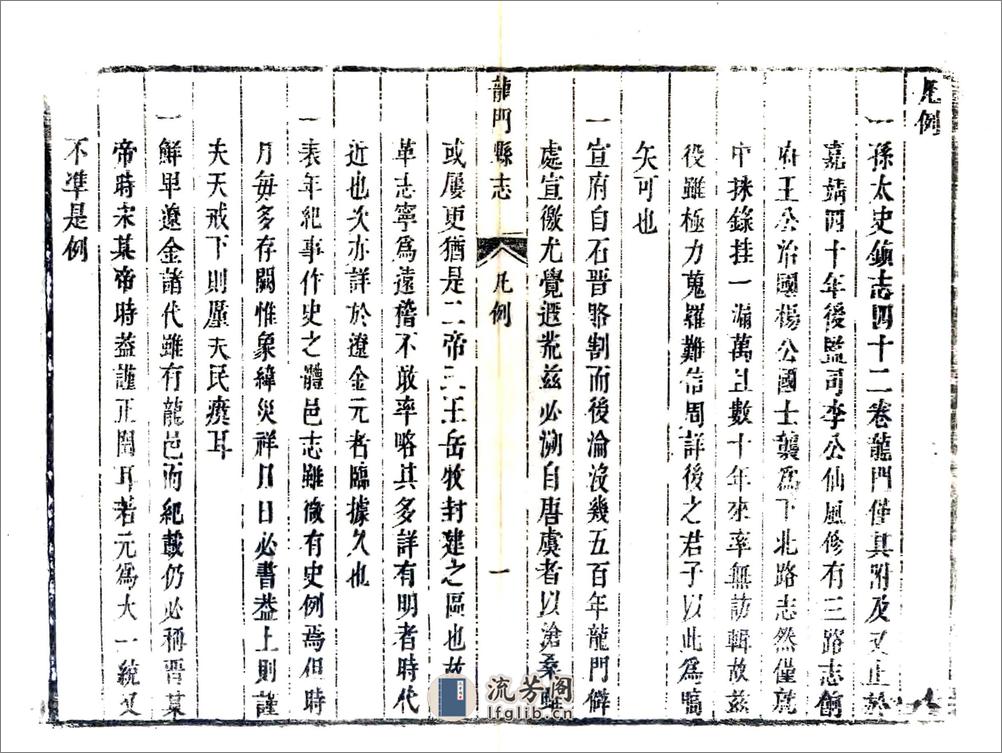 凡例
一孫太史鎮志四十二卷龍門僅其附及又止於
嘉靖四十年後監司李公仙風修有三路志前
府王公治國楊公國士襲爲下北路志然僅就
中採錄挂一漏萬且數十年來率無訪輯故茲
役雖極力蒐羅難信周詳後之君子以此爲嚆
矢可也
一宣府自石晋賂割而後淪沒幾五百年龍門僻
處宣徼尤覺遐荒兹必溯自唐虞者以滄桑雖
龍門縣志
凡例
一
或屢更猶是二帝三王岳牧封建之區也故
革志寧爲遠稽不敢率略其多詳有明者時代
近也次亦詳於遼金元者臨據久也
一表年紀事作史之體邑志雖微有史例焉但時
月每多存闕惟象緯災祥月日必書葢上則謹
夫天戒下則廑夫民瘼耳
一鮮卑遼金諸代雖有龍邑而紀載仍必稱晋某
帝時宋某帝時葢謹正閏耳若元爲大一統又
不準是例
流芳阁
lfglib.cn